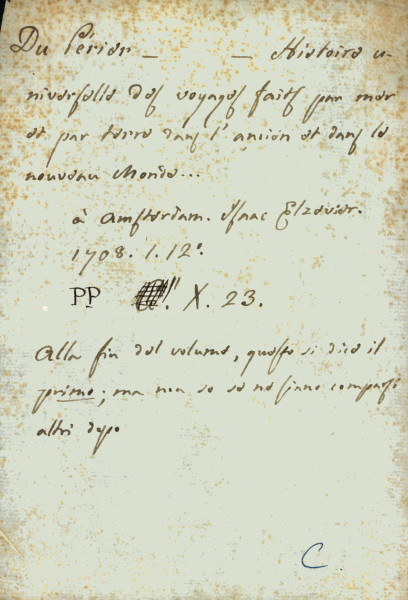 Du Périer _ _ Histoire u-
niverselle des voyages faits par mer
et par terre dans l'ancien et dans le
nouveau Monde...
à Amsterdam. Isaac Elzevier.
1708. 1. 12°.
PP X. 23.
Alla fin del volume, questo si dice il
primo; ma non so se ne siano comparsi
altri dopo
C